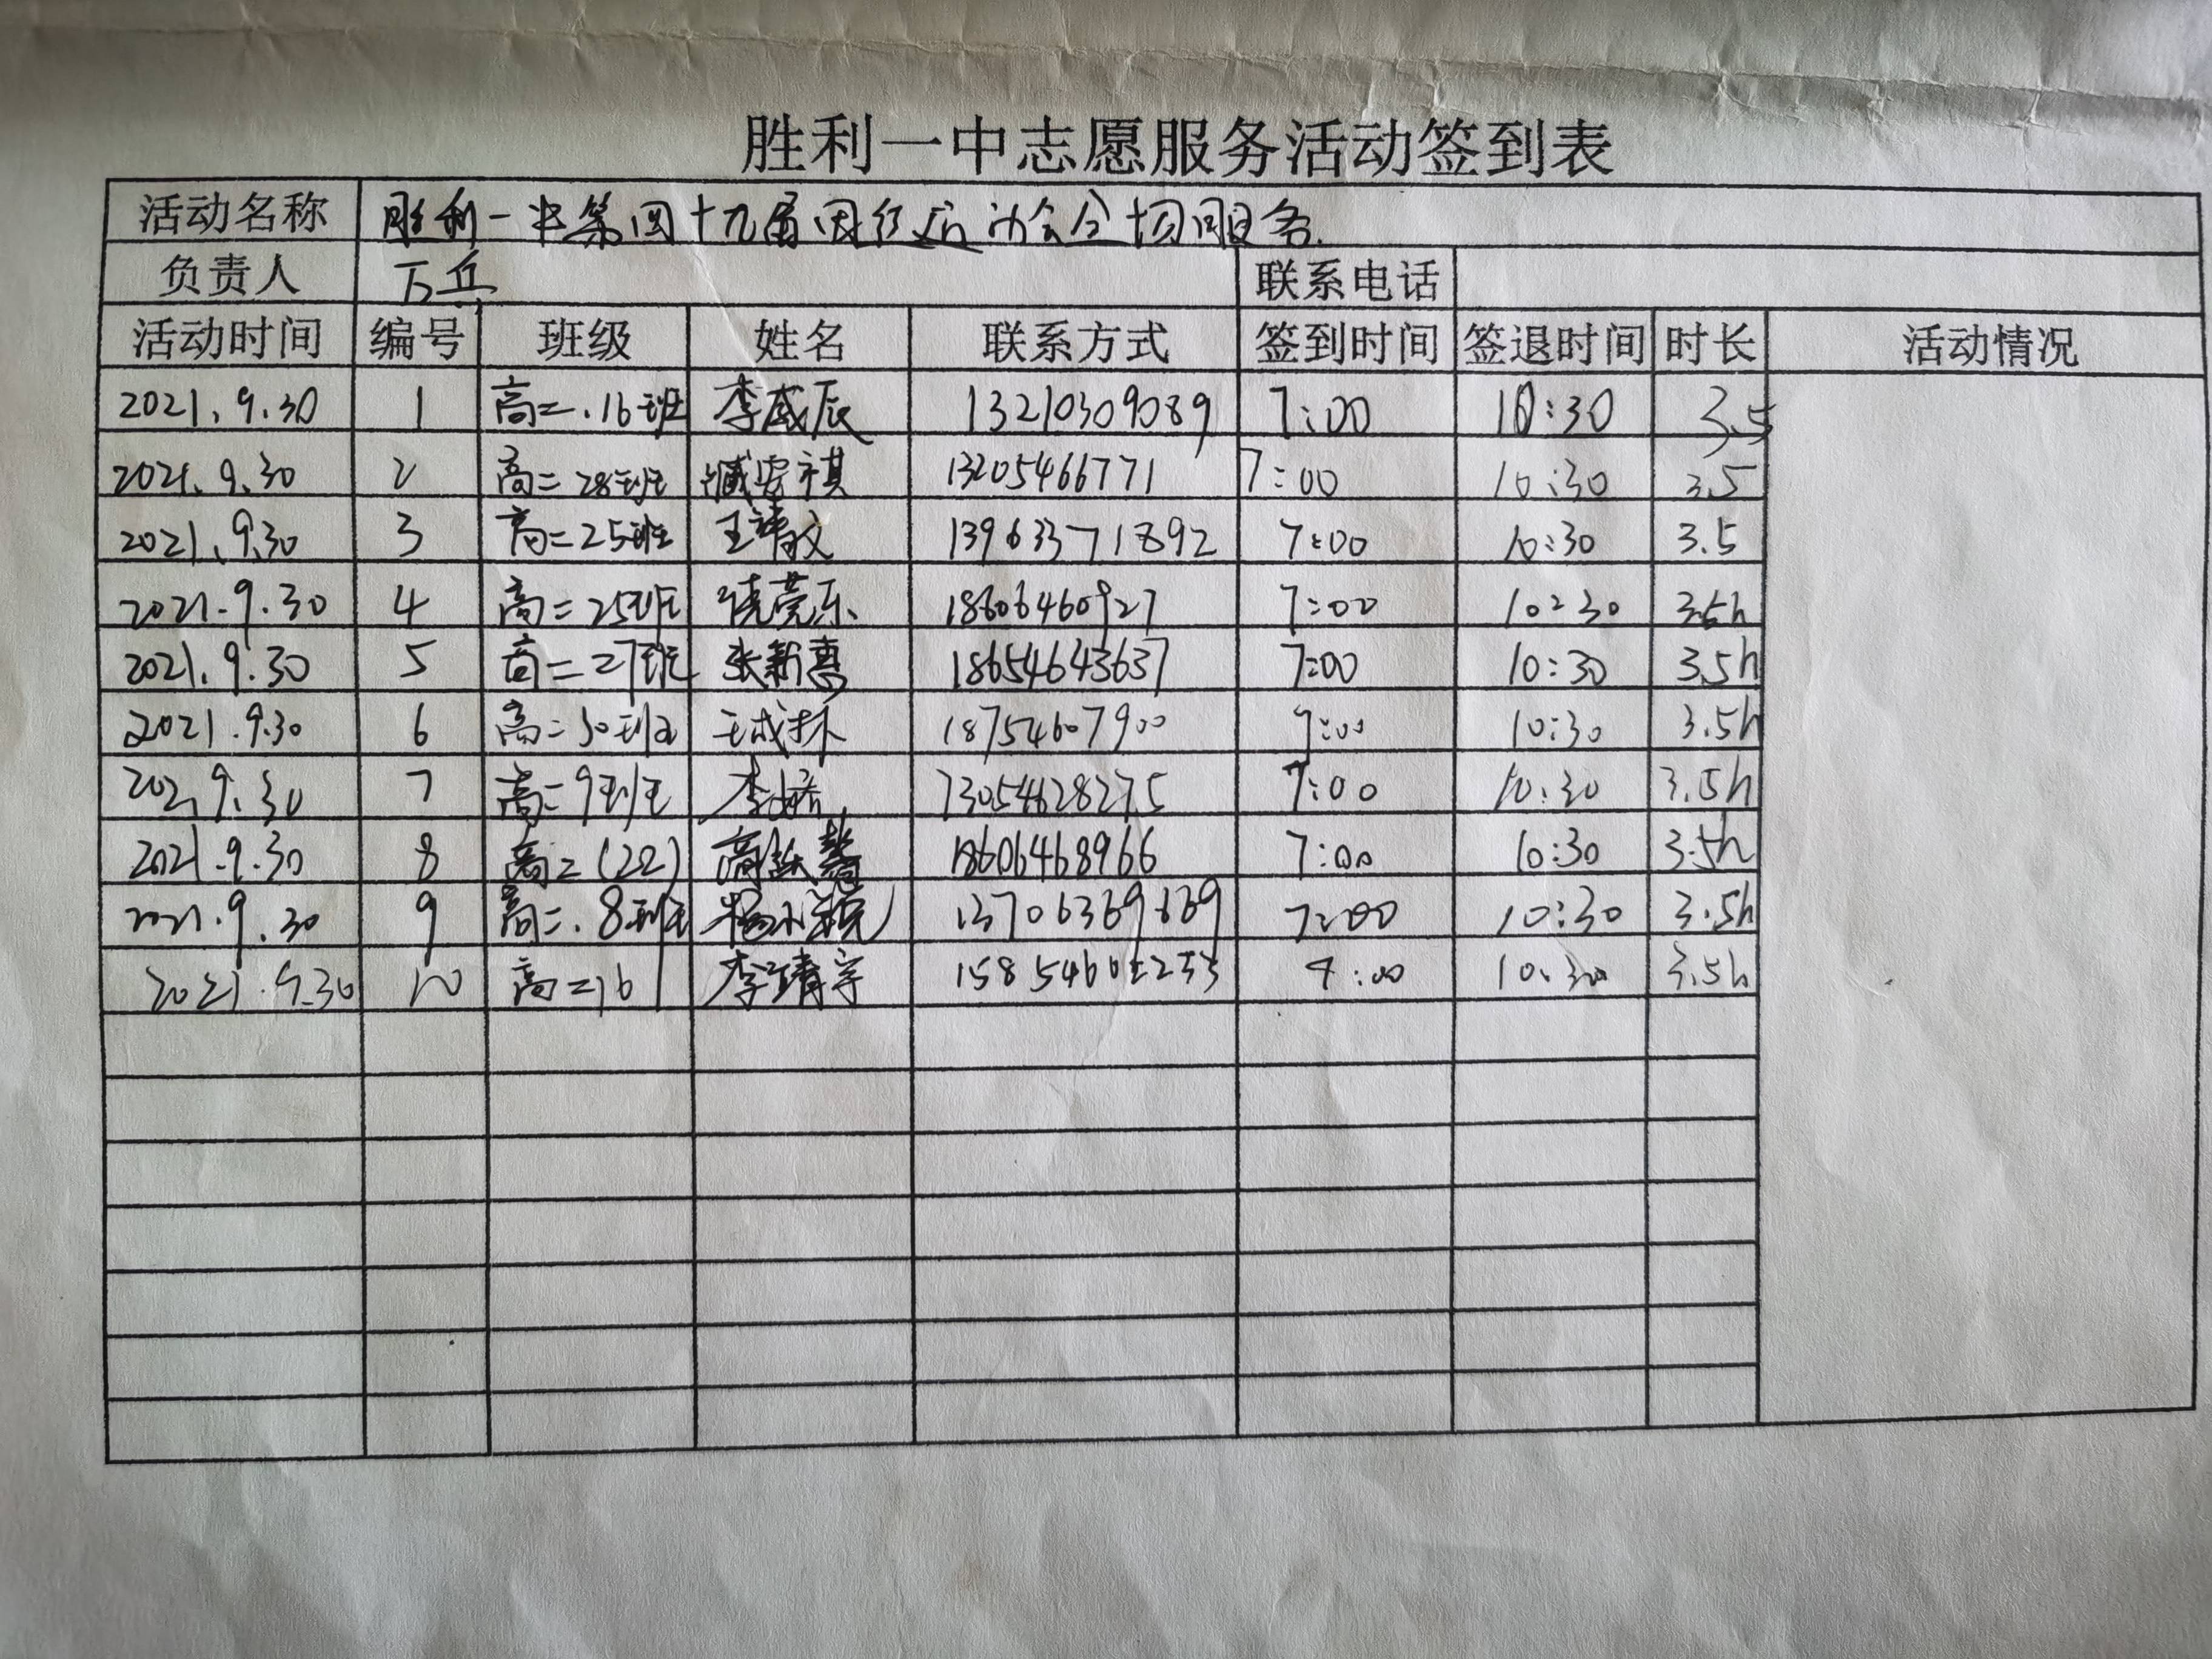 胜利一中志愿服务活动签到表
活动名称 胜利一中第四十九届田径运动会全场服务.
负责人 万兵 联系电话
活动时间 编号 班级 姓名 联系方式 签到时间 签退时间 时长 活动情况
2021.9.30 1 高二.16班 李威辰 13210309089 7:00 10:30 3.5
2021.9.30 2 高二28班 臧安祺 13205466771 7:00 10:30 3.5
2021.9.30 3 高二25班 王靖文 13963371892 7:00 10:30 3.5
2021.9.30 4 高二25班 18606460927 7:00 10:30 3.5h
2021.9.30 5 高二27班 张新惠 18654643637 7:00 10:30 3.5h
2021.9.30 6 高二30班 王成林 18754607900 7:00 10:30 3.5h
2021.9.30 7 高二9班 李娇 10:30 3.5h
2021.9.30 8 高二(22) 18606468966 7:00 10:30 3.5h
2021.9.30 9 高二.8班 7:00 10:30 3.5h
2021.9.30 10 高二16 李靖宇 7:00 10:30 3.5h